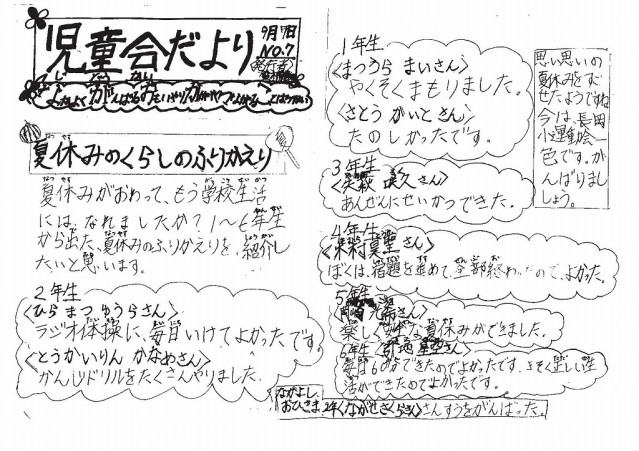 児童会だより
9月7日
NO.7
夏休みのくらしのふりかえり
夏休みがおわって、もう学校生活
には、なれましたか？1～6年生
から出た、夏休みのふりかえりを、紹介し
たいと思います。
2年生
<ひらまつ ゆうらさん>
ラジオ体操に、毎日いけてよかったです。
<とうかいりん かなめさん>
かんじドリルをたくさんやりました。
1年生
<まつうら まいさん>
やくそくまもりました。
<さとう かいとさん>
たのしかったです。
3年生
さん>
あんぜんにせいかつできた。
4年生
さん>
ぼくは、宿題を進めて、全部終わったので、よかった。
5年生
さん>
楽しく安全な夏休みができました。
6年生
さん
毎日60分できたのでよかったです。きそく正しい生
活ができたのでよかったです。
なかよし、
おひさま
2年<ながせさくらさん>さんすうをがんばった。
思い思いの
夏休みをすご
せたようですね
今は、長田
小運動会一
色です。が
んばりまし
ょう。